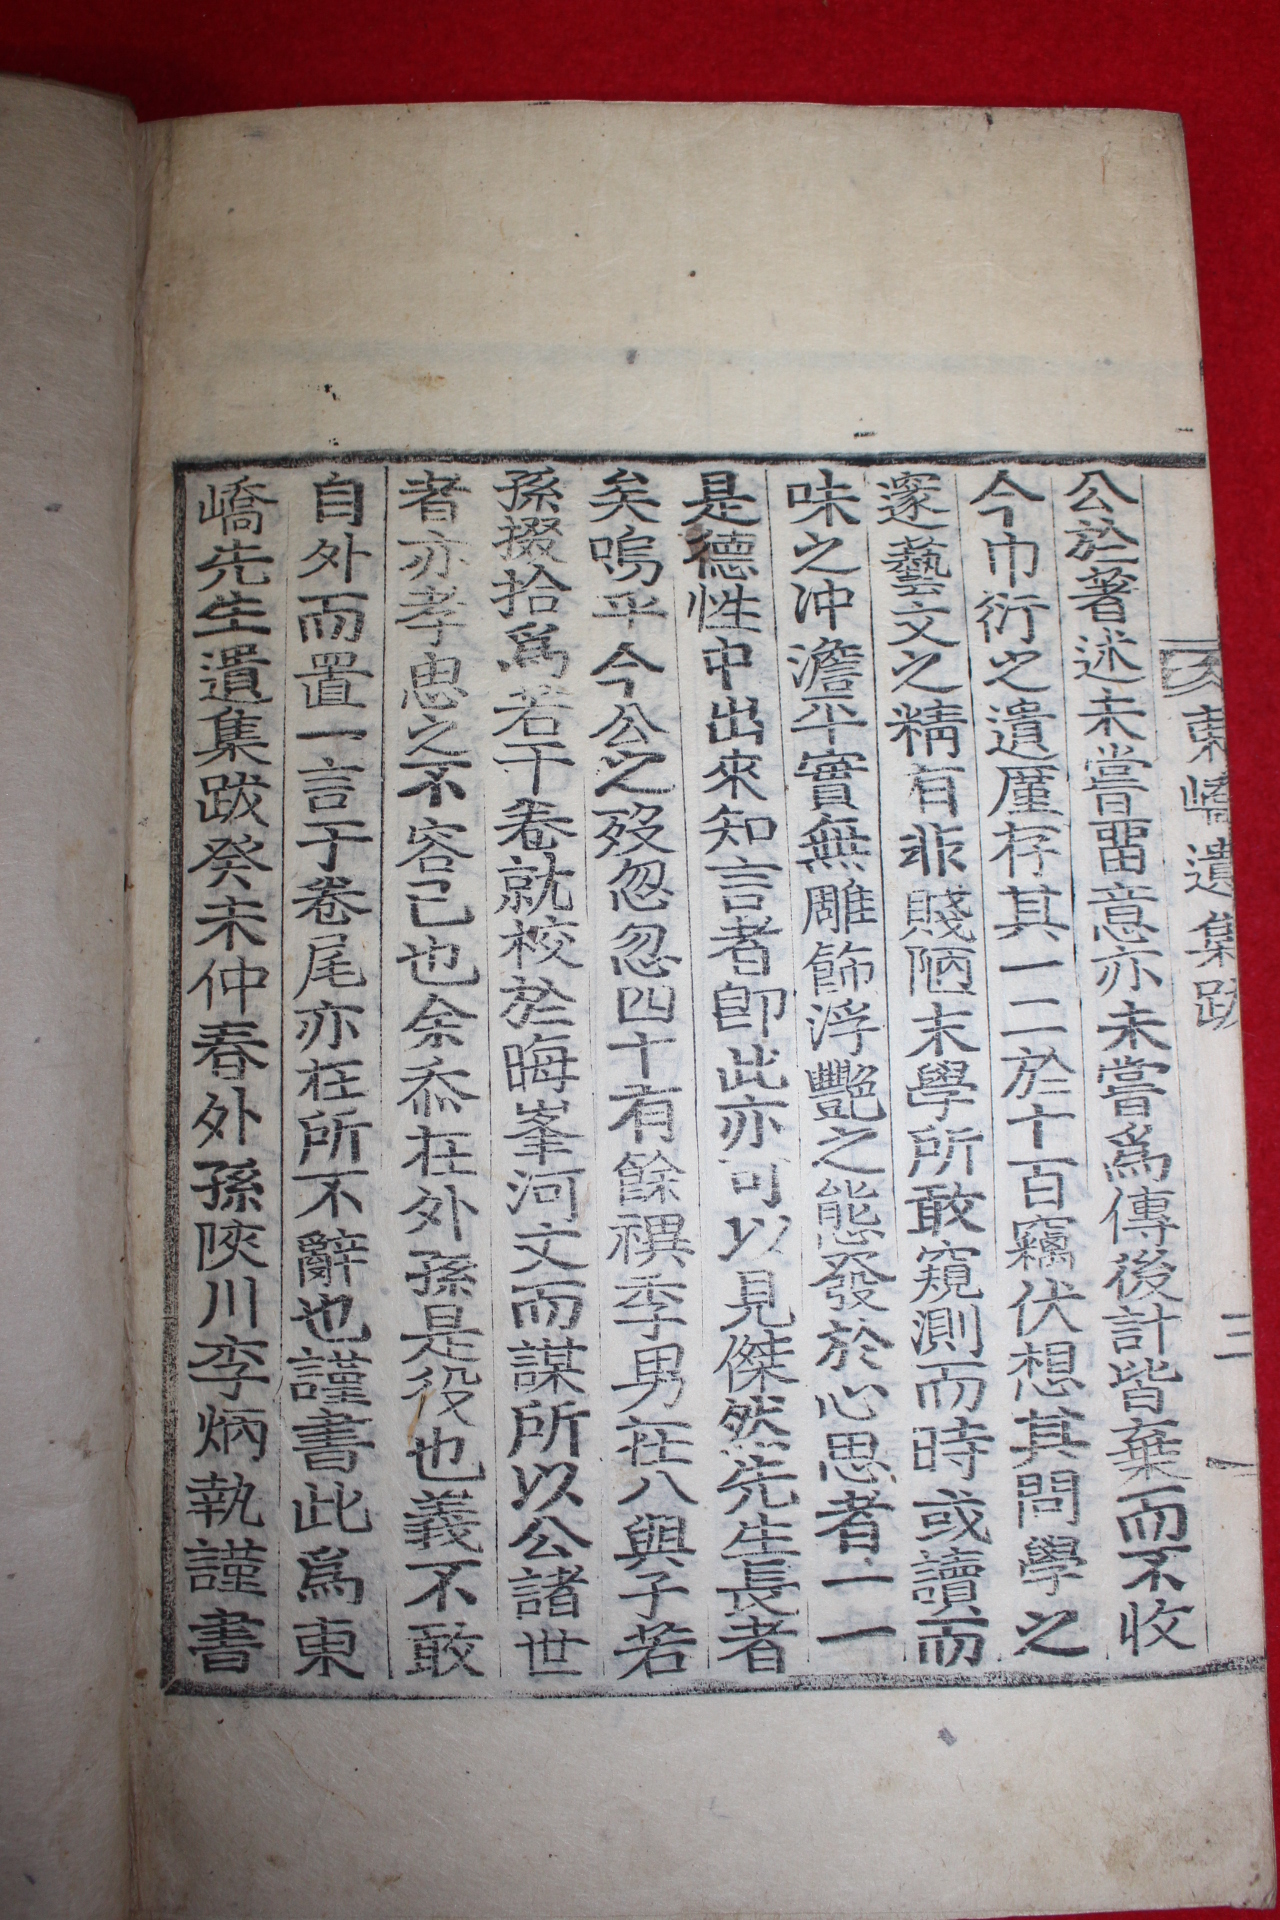 東嶠遺集跋
三
公於著述未嘗畱意亦未嘗爲傳後計皆棄而不收
今巾衍之遺廑存其一二於十百竊伏想其問學之
邃藝文之精有非賤陋末學所敢窺測而時或讀而
味之冲澹平實無雕餙浮艷之能發於心思者一一
是德性中出來知言者卽此亦可以見傑然先生長者
矣嗚乎今公之歿忽忽四十有餘禩季男在八與子若
孫掇拾爲若干卷就校於晦峯河文而謀所以公諸世
者亦孝思之不容已也余忝在外孫是役也義不敢
自外而置一言于卷尾亦在所不辭也謹書此爲東
嶠先生遺集跋癸未仲春外孫陜川李炳執謹書